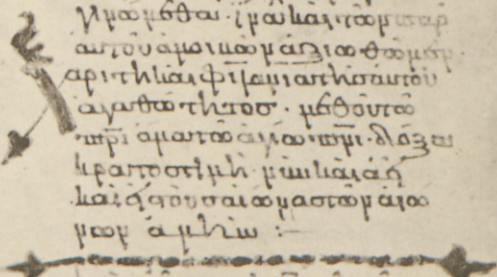 ἵνα καὶ τῶν παρ
αὐτοῦ ἀμοιβῶν ἀξιωθῶμεν
χάριτι καὶ φιλανίᾳ τῆς αὐτοῦ
ἀγαθότητος· μεθ οὗ τῶ
πρὶ ἅμα τῶ ἁγίω πνι· δόξα
κράτος τιμὴ· νῦν καὶ ἀεὶ
καὶ εἰς τοὺς αἰῶνας τῶν αἰώ
νων ἀμήν :—